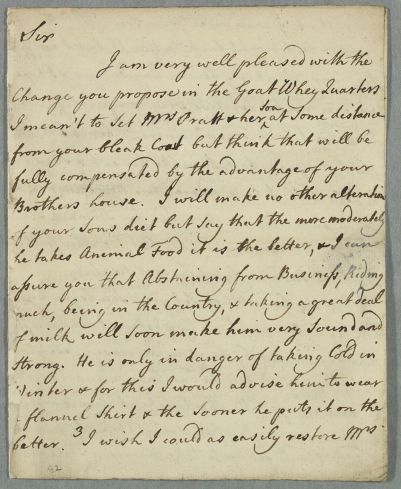 Sir
I am very well pleased with the
Change you propose in the Goat Whey Quarters
I mean't to set Mrs Pratt & her son at Some distance
from your bleak Coast but think that will be
fully compensated by the advantage of your
Brothers house. I will make no other alteration
of your Sons diet but Say that the more moderately
he takes Animal Food it is the better, & I can
assure you that Abstaining from Business, Riding
much, being in the Country, & taking a great deal
of milk will soon make him very Sound and
Strong. He is only in danger of taking Cold in
Winter & for this I would advise him to wear
a flannel Shirt & the Sooner he puts it on the
better. 3 I wish I could as easily restore Mrs